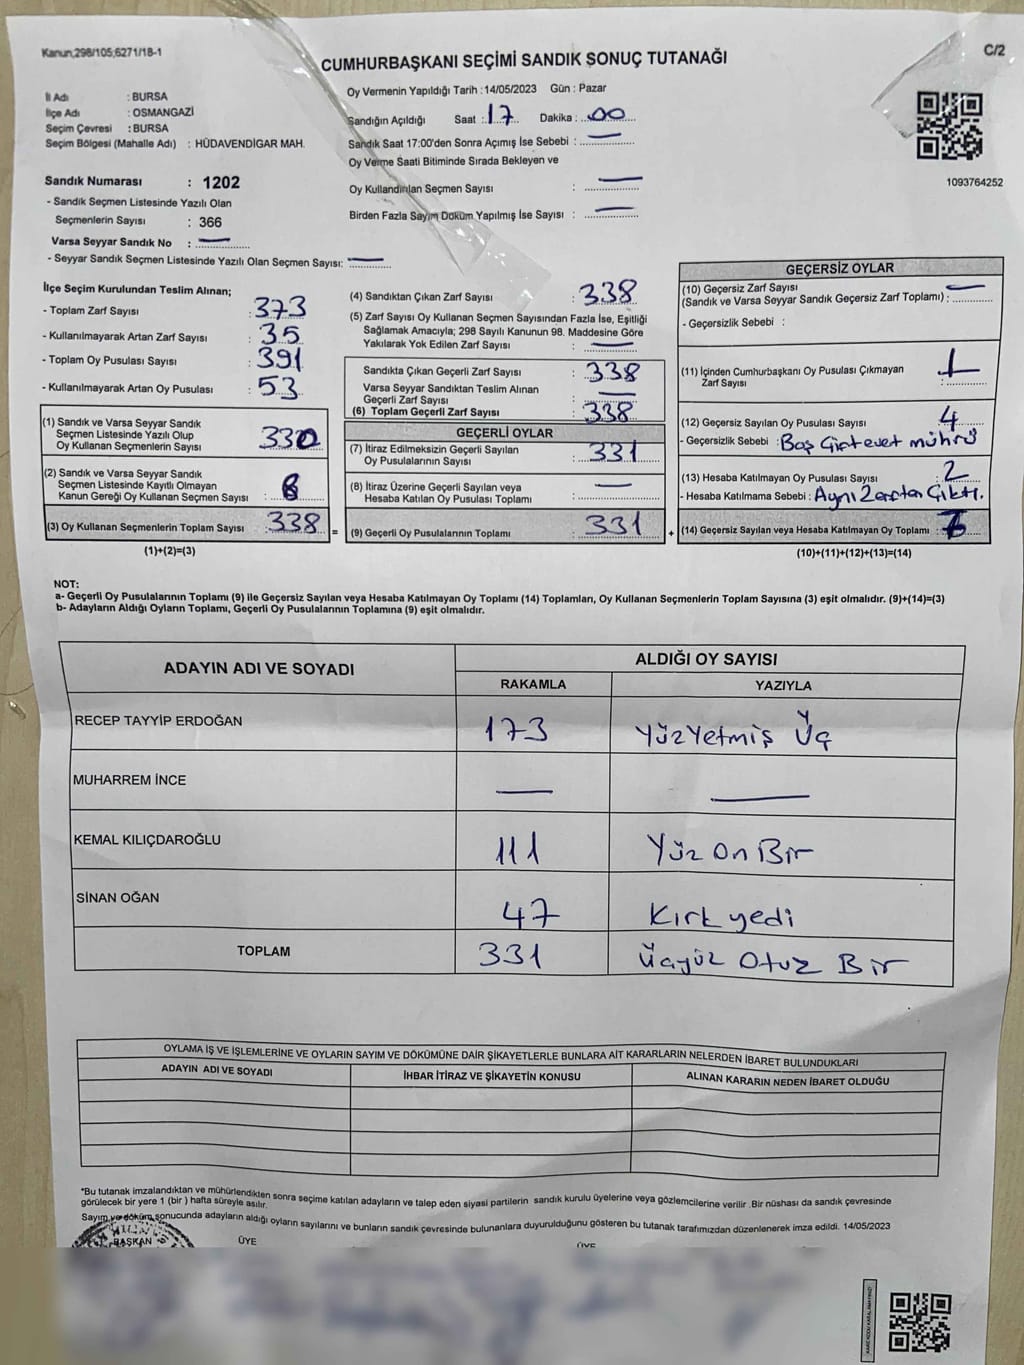 Kanun;298/105;6271/18-1
C/2
CUMHURBAŞKANI SEÇİMİ SANDIK SONUÇ TUTANAĞI
İl Adı : BURSA
İlçe Adı : OSMANGAZİ
Seçim Çevresi : BURSA
Seçim Bölgesi (Mahalle Adı) : HÜDAVENDİGAR MAH.
Oy Vermenin Yapıldığı Tarih : 14/05/2023 Gün : Pazar
Sandığın Açıldığı Saat : 17 Dakika : 00
Sandık Saat 17:00'den Sonra Açımış İse Sebebi : —
Oy Verme Saati Bitiminde Sırada Bekleyen ve
Oy Kullandırılan Seçmen Sayısı : —
Birden Fazla Sayım Döküm Yapılmış İse Sayısı : —
1093764252
Sandık Numarası : 1202
- Sandık Seçmen Listesinde Yazılı Olan
Seçmenlerin Sayısı : 366
Varsa Seyyar Sandık No : —
- Seyyar Sandık Seçmen Listesinde Yazılı Olan Seçmen Sayısı: —
İlçe Seçim Kurulundan Teslim Alınan;
- Toplam Zarf Sayısı : 373
- Kullanılmayarak Artan Zarf Sayısı : 35
- Toplam Oy Pusulası Sayısı : 391
- Kullanılmayarak Artan Oy Pusulası : 53
(1) Sandık ve Varsa Seyyar Sandık
Seçmen Listesinde Yazılı Olup
Oy Kullanan Seçmenlerin Sayısı : 330
(2) Sandık ve Varsa Seyyar Sandık
Seçmen Listesinde Kayıtlı Olmayan
Kanun Gereği Oy Kullanan Seçmen Sayısı : 8
(3) Oy Kullanan Seçmenlerin Toplam Sayısı : 338 =
(1)+(2)=(3)
(4) Sandıktan Çıkan Zarf Sayısı : 338
(5) Zarf Sayısı Oy Kullanan Seçmen Sayısından Fazla İse, Eşitliği
Sağlamak Amacıyla; 298 Sayılı Kanunun 98. Maddesine Göre
Yakılarak Yok Edilen Zarf Sayısı : —
Sandıkta Çıkan Geçerli Zarf Sayısı : 338
Varsa Seyyar Sandıktan Teslim Alınan
Geçerli Zarf Sayısı : —
(6) Toplam Geçerli Zarf Sayısı : 338
GEÇERLİ OYLAR
(7) İtiraz Edilmeksizin Geçerli Sayılan
Oy Pusulalarının Sayısı : 331
(8) İtiraz Üzerine Geçerli Sayılan veya
Hesaba Katılan Oy Pusulası Toplamı : —
(9) Geçerli Oy Pusulalarının Toplamı : 331 +
GEÇERSİZ OYLAR
(10) Geçersiz Zarf Sayısı
(Sandık ve Varsa Seyyar Sandık Geçersiz Zarf Toplamı) : —
- Geçersizlik Sebebi :
(11) İçinden Cumhurbaşkanı Oy Pusulası Çıkmayan
Zarf Sayısı : 1
(12) Geçersiz Sayılan Oy Pusulası Sayısı : 4
- Geçersizlik Sebebi : Boş Çift evet mührü
(13) Hesaba Katılmayan Oy Pusulası Sayısı : 2
- Hesaba Katılmama Sebebi : Aynı Zarftan Çıktı.
(14) Geçersiz Sayılan veya Hesaba Katılmayan Oy Toplamı : 7
(10)+(11)+(12)+(13)=(14)
NOT:
a- Geçerli Oy Pusulalarının Toplamı (9) ile Geçersiz Sayılan veya Hesaba Katılmayan Oy Toplamı (14) Toplamları, Oy Kullanan Seçmenlerin Toplam Sayısına (3) eşit olmalıdır. (9)+(14)=(3)
b- Adayların Aldığı Oyların Toplamı, Geçerli Oy Pusulalarının Toplamına (9) eşit olmalıdır.
ADAYIN ADI VE SOYADI ALDIĞI OY SAYISI
RAKAMLA YAZIYLA
RECEP TAYYİP ERDOĞAN 173 Yüz Yetmiş Üç
MUHARREM İNCE — —
KEMAL KILIÇDAROĞLU 111 Yüz On Bir
SİNAN OĞAN 47 Kırk yedi
TOPLAM 331 Üçyüz Otuz Bir
OYLAMA İŞ VE İŞLEMLERİNE VE OYLARIN SAYIM VE DÖKÜMÜNE DAİR ŞİKAYETLERLE BUNLARA AİT KARARLARIN NELERDEN İBARET BULUNDUKLARI
ADAYIN ADI VE SOYADI İHBAR İTİRAZ VE ŞİKAYETİN KONUSU ALINAN KARARIN NEDEN İBARET OLDUĞU
*Bu tutanak imzalandıktan ve mühürlendikten sonra seçime katılan adayların ve talep eden siyasi partilerin sandık kurulu üyelerine veya gözlemcilerine verilir .Bir nüshası da sandık çevresinde
görülecek bir yere 1 (bir ) hafta süreyle asılır.
Sayım ve döküm sonucunda adayların aldığı oyların sayılarını ve bunların sandık çevresinde bulunanlara duyurulduğunu gösteren bu tutanak tarafımızdan düzenlenerek imza edildi. 14/05/2023
BAŞKAN ÜYE ÜYE